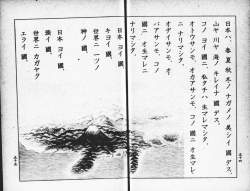 日本ハ、春夏秋冬ノナガメノ美シイ國デス。
山ヤ川ヤ海ノキレイナ國デス。
コノヨイ國ニ、私タチハ生マレマシタ。
オトウサンモ、オカアサンモ、コノ國ニオ生マレ
ニナリマシタ。
オヂイサンモ、オバアサンモ、コノ國ニオ生マレニ
ナリマシタ。
日本ヨイ國、
キヨイ國。
世界ニ一ツノ
神ノ國。
日本ヨイ國、
強イ國。
世界ニカガヤク
エライ國。